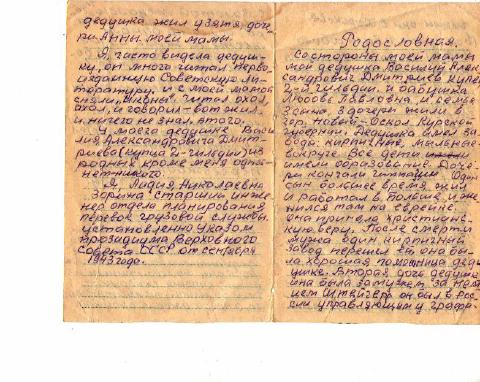 дедушка жил у зятя, доче-
ри Анны. моей мамы.
Я, часто видела дедуш-
ку, он много читал перво-
изданную Советскую ли-
тературу, и с моей мамой
сняли "иконы" читал охал
охал, и говорил - вот жил
и ничего не знал, этого.
У моего дедушки Васи-
лия, Александровича Дмит-
риева (купца 2й - гильдии) из
родных кроме меня одна
нет никого.
Я, Лидия, Николаевна
Зорина старший инже-
нер отдела планирования
перевоз. грузовой службы.
установленно Указом
прозидиума Верховного
Совета СССР от сентября
1943 года.
Родословная.
Со стороны моей мамы
мой дедушка Василий Алек-
сандрович Дмитриев купец
2-й гильдии. и бабушка
Любовь Павловна, и семье
3 сына, 2 дочери жили в
гор. Новый-Оскол Курской
губернии. Дедушка имел за-
вода: кирпичные, мыльные
вокруге. Все дети
имели образование. Доче-
ри кончали гимназии. Один
сын большее время жил
и работал в Польше, и же-
нился там на еврейке
она приняла христианс-
кую веру. После смерти
мужа один кирпичный
завод перешел ей, она бы-
ла хорошая помощница деду-
шке. Вторая дочь дедушк
ина была замужем за нем-
цем Штейгер, он был в Рос-
сии управляющим у графа.